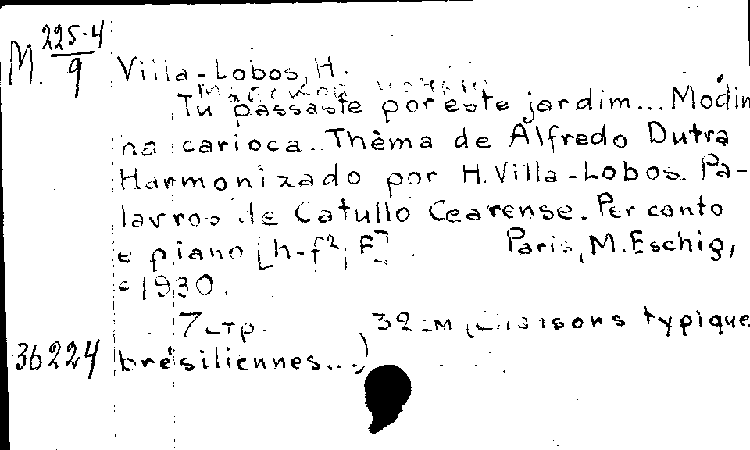 M. 225-4/9
Villa-Lobos, H.
Tu passaste por este jardim... Modin
ha carioca. Thèma de Alfredo Dutra
Harmonizado por H. Villa-Lobos. Pa-
lavros de Catullo Cearense. Per canto
e piano [h-f², F]. Paris, M. Eschig,
c 1930.
7 стр. 32 см (Chansons typique
36224 brésiliennes...)